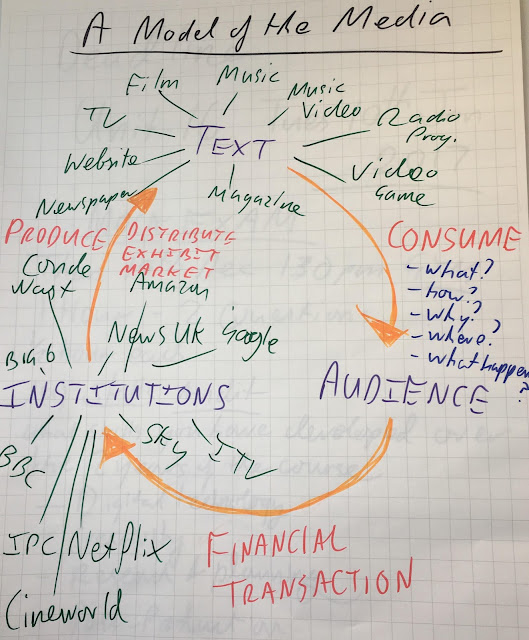 A Model of the Media
Film
Music
Music
Video
TV
Radio
Prog.
TEXT
Website
Video
Game
Newspaper
Magazine
PRODUCE
DISTRIBUTE
EXHIBIT
MARKET
CONSUME
- what?
- how?
- why?
- where?
- what happens
?
Conde
Nast
Amazon
News UK
Google
Big 6
INSTITUTIONS
AUDIENCE
BBC
Sky
ITV
IPC
Netflix
Cineworld
FINANCIAL
TRANSACTION